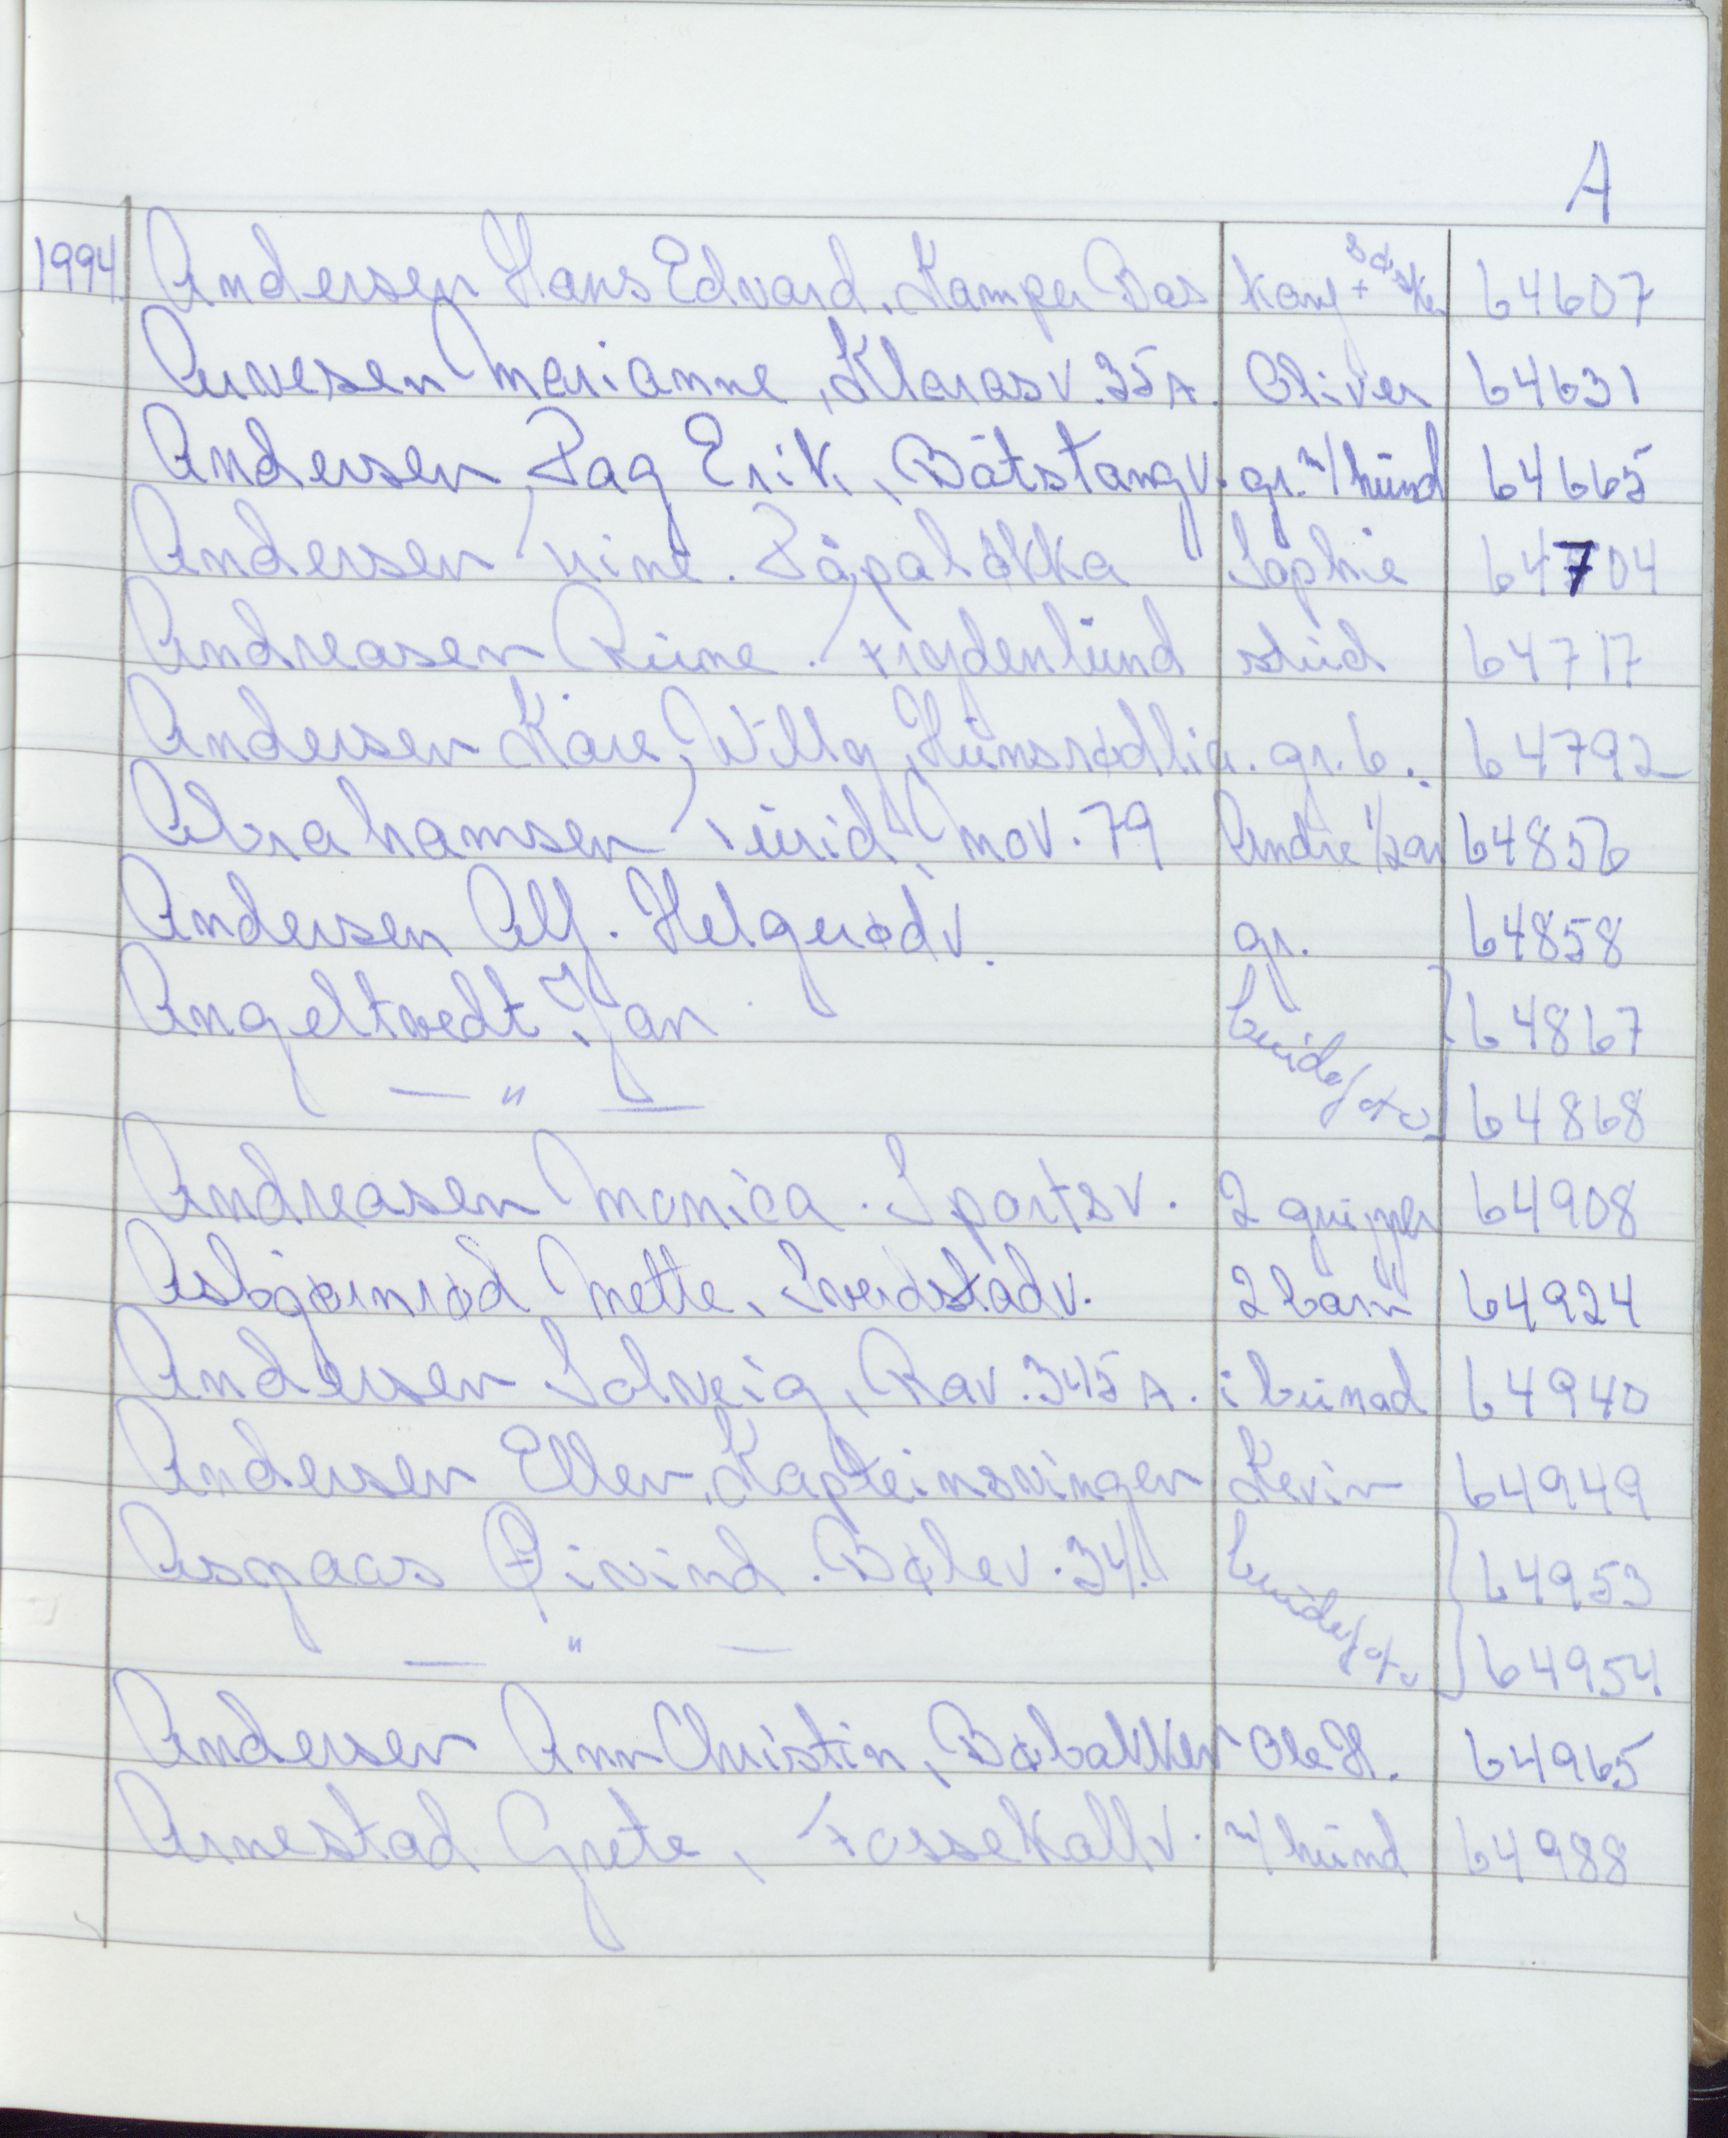 A
1994. Andersen Hans Edvard. Kamper Bas konf + søsken 64607
Arvesen Marianne, Klarasv. 35A. Oliver 64631
Andersen, Dag Erik, Båtstangv. gr. m/hund 64665
Andersen Trine. Påpaløkka Sophie 64704
Andreasen Rune. Frydenlund stud 64717
Andersen Kåre, Willy, Humsrødlia. gr. b. 64792
Abrahamsen Turid, nov. 79 Andre 1/2 år 64856
Andersen Alf. Helgerødv. gr. 64858
Angeltvedt, Jan brudef/ 64867
— " — 64868
Andreasen Monica. Sportsv. 2 grupper 64908
Asbjørnrød Mette. Sverdstadv. 2 barn 64924
Andersen Solveig, Rav. 345A. i bunad 64940
Andersen Ellen, Kapteinsvingen Kevin 64949
Asgaas Øivind. Bølev. 34. brudef/ 64953
— " — 64954
Andersen Ann Christin, Bøbakken Ole H. 64965
Arnestad Grete, Fossekallv. m/hund 64988